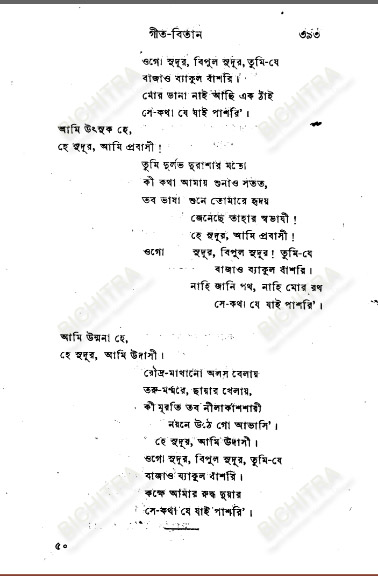 গীত-বিতান ৩৯৩
ওগো সুদূর, বিপুল সুদূর, তুমি-যে
বাজাও ব্যাকুল বাঁশরি।
মোর ডানা নাই আছি এক ঠাঁই
সে-কথা যে যাই পাশরি'।
আমি উৎসুক হে,
হে সুদূর, আমি প্রবাসী!
তুমি দুর্লভ দুরাশার মতো
কী কথা আমায় শুনাও সতত,
তব ভাষা শুনে তোমারে হৃদয়
জেনেছে তাহার স্বভাষী!
হে সুদূর, আমি প্রবাসী!
ওগো সুদূর, বিপুল সুদূর! তুমি-যে
বাজাও ব্যাকুল বাঁশরি।
নাহি জানি পথ, নাহি মোর রথ
সে-কথা যে যাই পাশরি'।
আমি উন্মনা হে,
হে সুদূর, আমি উদাসী।
রৌদ্র-মাখানো অলস বেলায়
তরু-মর্ম্মরে, ছায়ার খেলায়,
কী মূরতি তব নীলাকাশশায়ী
নয়নে উঠে গো আভাসি'।
হে সুদূর, আমি উদাসী।
ওগো সুদূর, বিপুল সুদূর, তুমি-যে
বাজাও ব্যাকুল বাঁশরি।
কক্ষে আমার রুদ্ধ দুয়ার
সে-কথা যে যাই পাশরি'।
৫০
BICHITRA